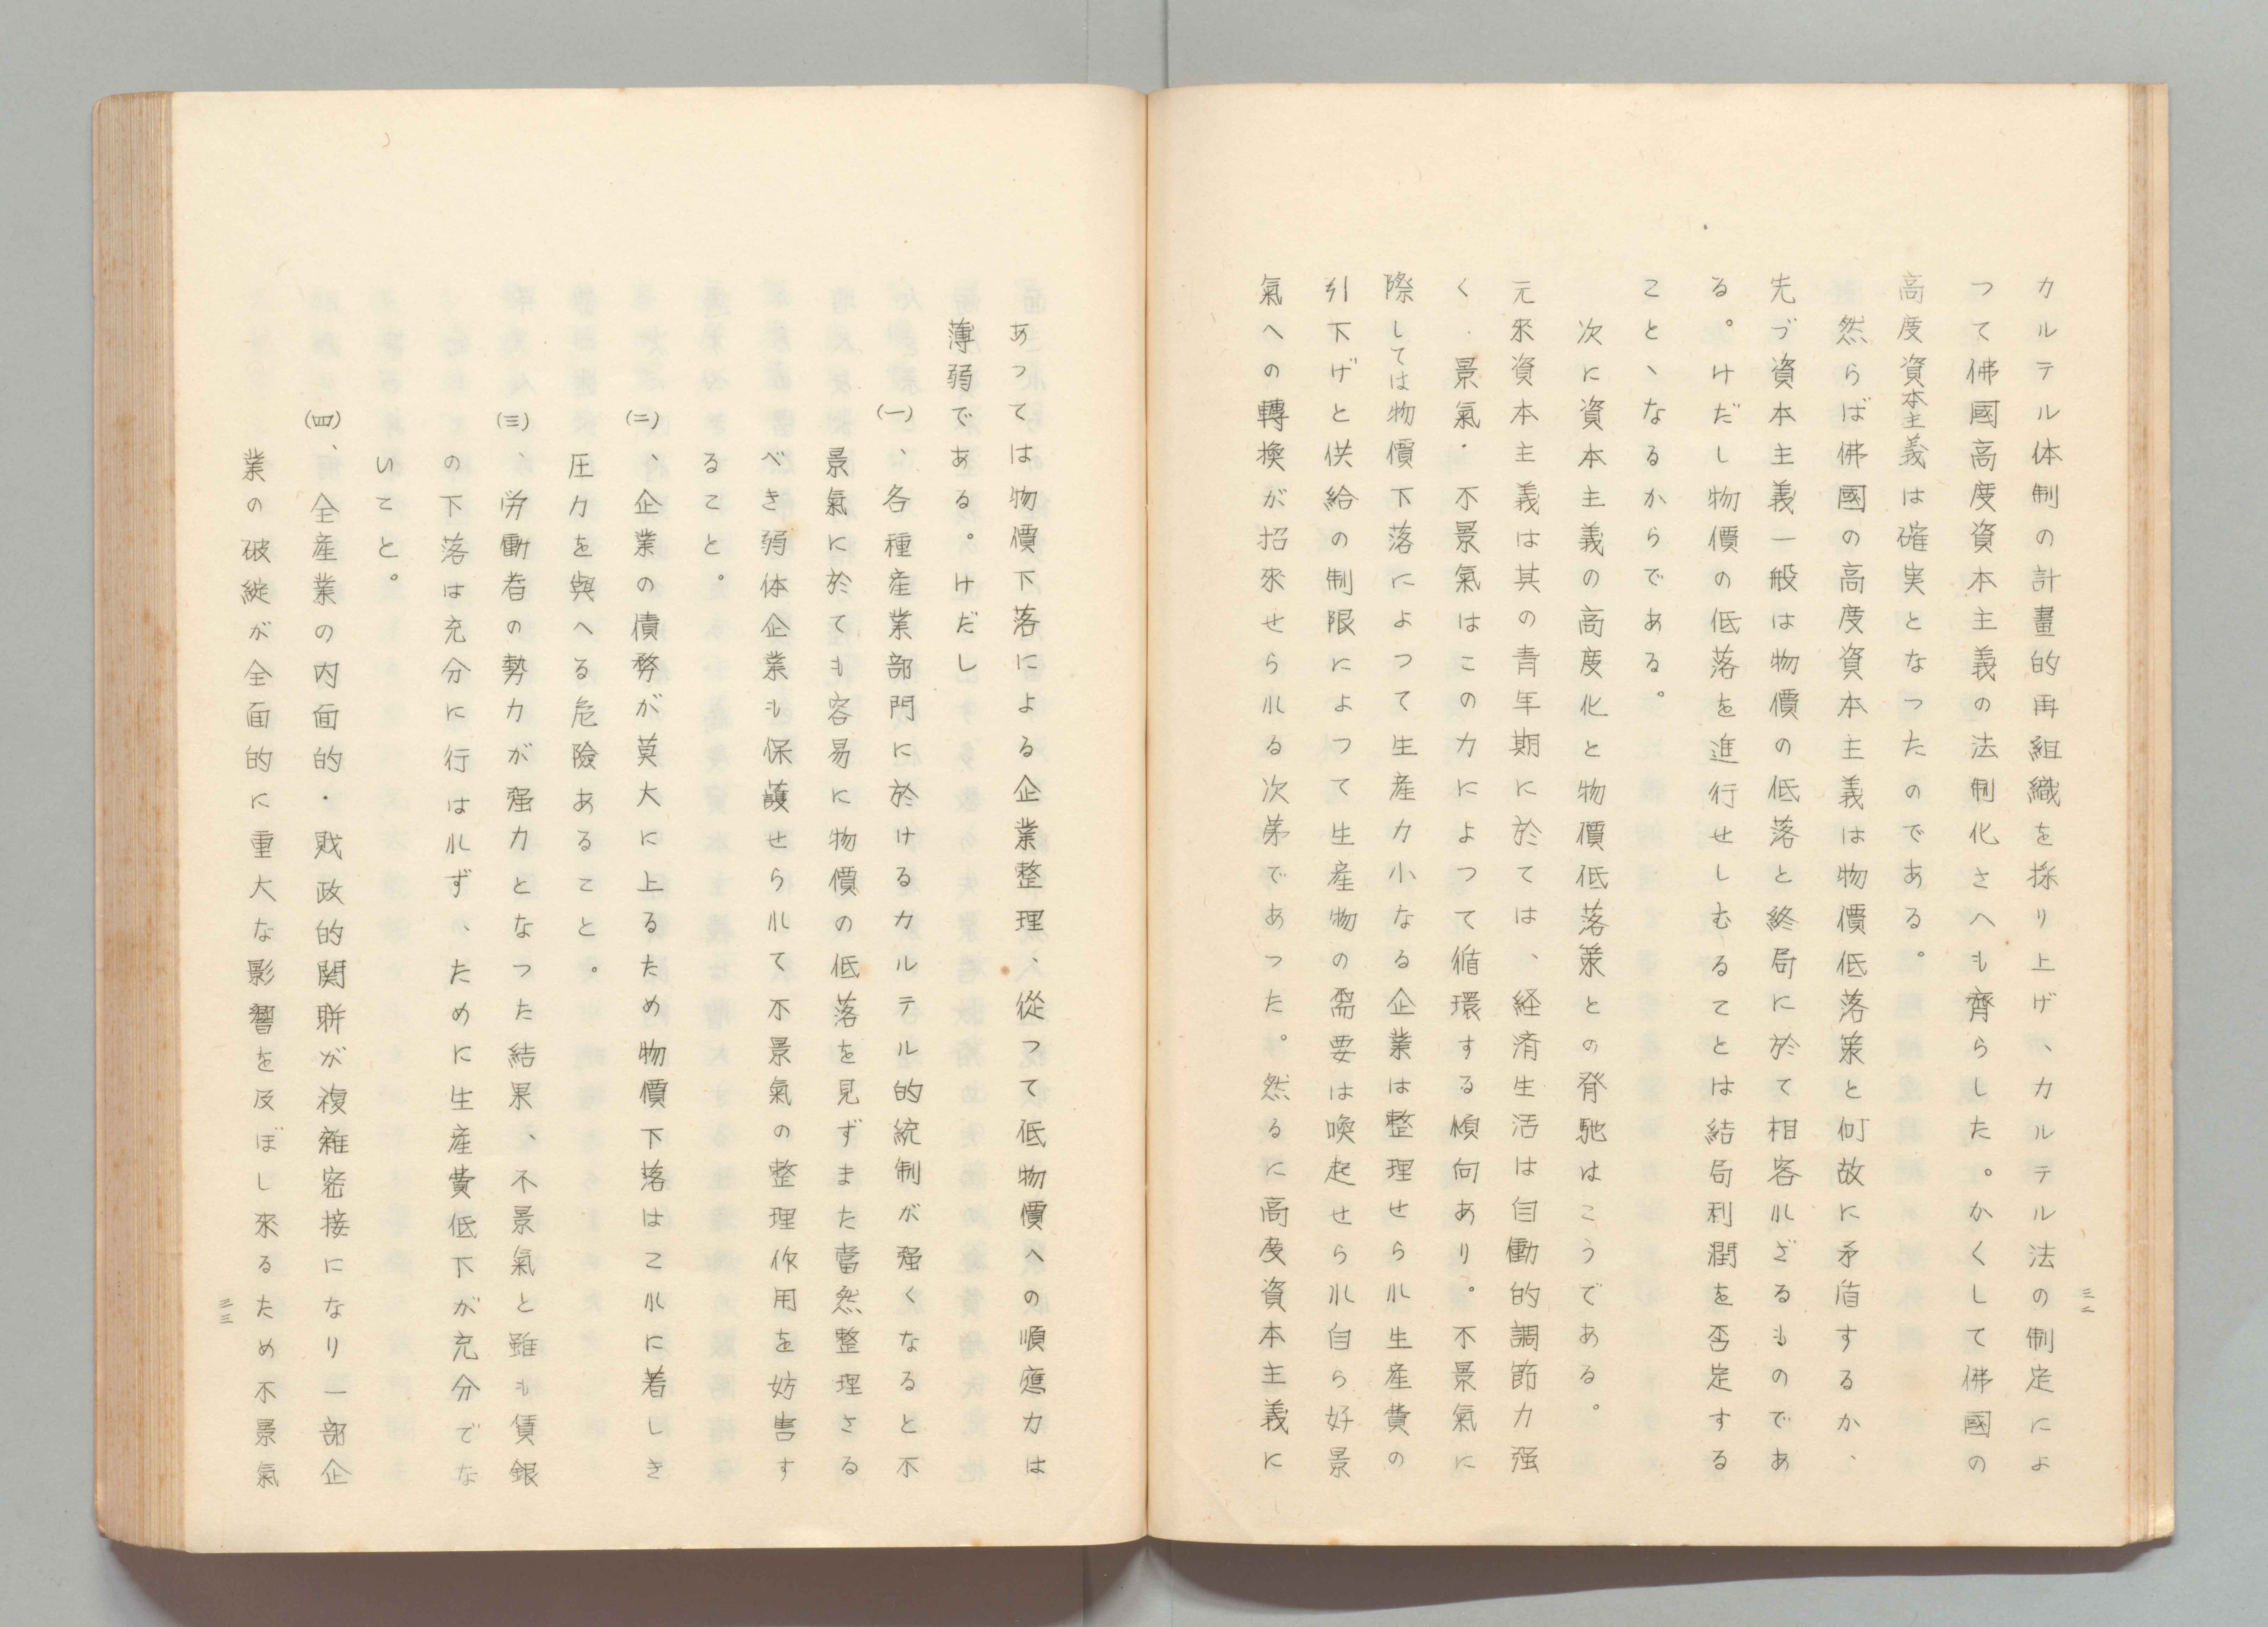 カルテル体制の計畫的再組織を採り上げ、カルテル法の制定によ
つて佛國高度資本主義の法制化さへも齊らした。かくして佛國の
高度資本主義は確実となつたのである。
然らば佛國の高度資本主義は物價低落策と何故に矛盾するか、
先づ資本主義一般は物價の低落と終局に於て相容れざるものであ
る。けだし物價の低落を進行せしむることは結局利潤を否定する
ことゝなるからである。
次に資本主義の高度化と物價低落策との背馳はこうである。
元來資本主義は其の青年期に於ては、経済生活は自働的調節力强
く、景氣・不景氣はこの力によつて循環する傾向あり。不景氣に
際しては物價下落によつて生産力小なる企業は整理せられ生産費の
引下げと供給の制限によつて生産物の需要は喚起せられ自ら好景
氣への轉換が招來せられる次第であつた。然るに高度資本主義に
三二
あつては物價下落による企業整理、從つて低物價への順應力は
薄弱である。けだし
(一)、各種産業部門に於けるカルテル的統制が强くなると不
景氣に於ても容易に物價の低落を見ずまた當然整理さる
べき弱体企業も保護せられて不景氣の整理作用を妨害す
ること。
(二)、企業の債務が莫大に上るため物價下落はこれに着しき
圧力を與へる危險あること。
(三)、労働者の勢力が强力となつた結果、不景氣と雖も賃銀
の下落は充分に行はれず、ために生産費低下が充分でな
いこと。
(四)、全産業の内面的・財政的関聯が複雑密接になり一部企
業の破綻が全面的に重大な影響を及ぼし來るため不景氣
三三